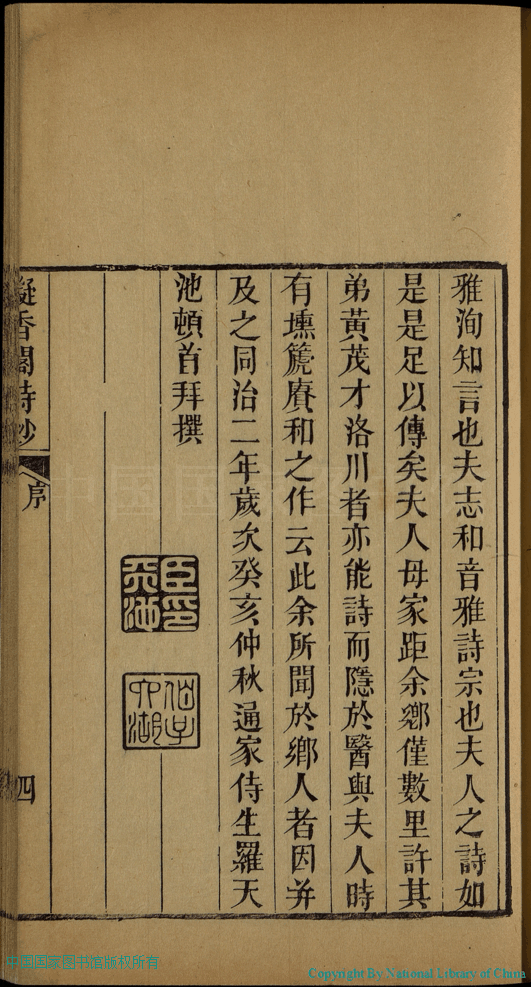 雅洵知言也夫志和音雅詩宗也夫人之詩如
是是足以傳矣夫人母家距余鄉僅數里許其
弟黃茂才洛川者亦能詩而隱於醫與夫人時
有壎篪賡和之作云此余所聞於鄉人者因并
及之同治二年歲次癸亥仲秋通家侍生羅天
池頓首拜撰
臣印
天池
六湖
凝香閣詩鈔
序
四
中国国家图书馆
中国国家图书馆版权所有
Copyright By National Library of China